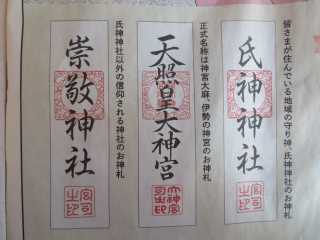 皆さまが住んでいる地域の守り神、氏神神社のお神札
氏神神社
正式名称は神宮大麻、伊勢の神宮のお神札
天照皇大神宮
氏神神社以外の信仰される神社のお神札
崇敬神社